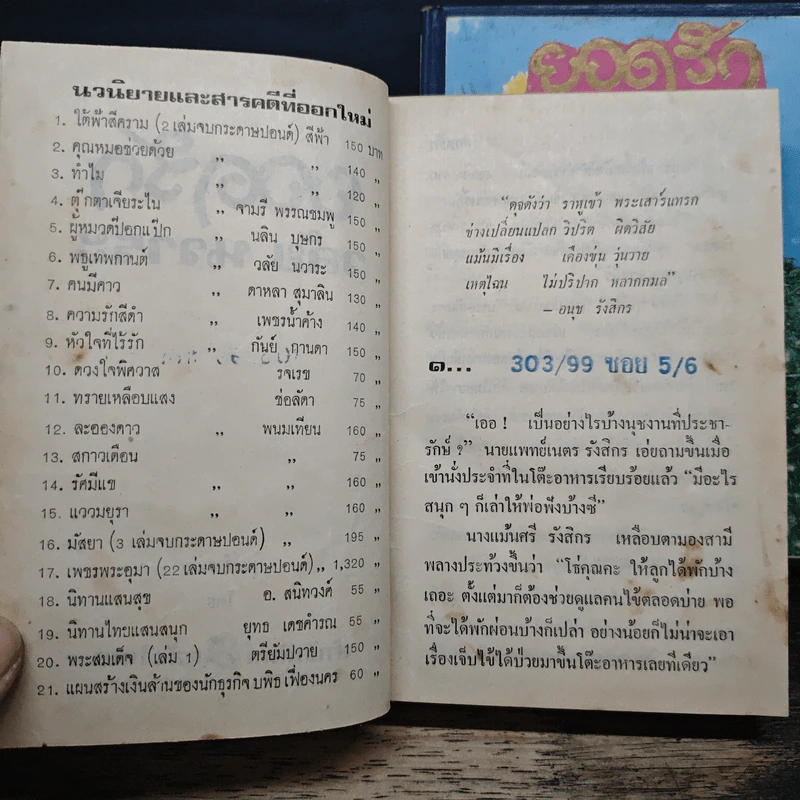 ยอดรัก
นวนิยายและสารคดีที่ออกใหม่
1. ใต้ฟ้าสีคราม (2 เล่มจบกระดาษปอนด์) สีฟ้า 150 บาท
2. คุณหมอช่วยด้วย ,, ,, 140 ,,
3. ทำไม ,, ,, 120 ,,
4. ตุ๊กตาเจียระไน ,, จามรี พรรณชมพู 150 ,,
5. ผู้หมวดป๊อกแป๊ก ,, นลิน บุษกร 150 ,,
6. พธูเทพกานต์ ,, วลัย นวาระ 150 ,,
7. คนมีคาว ,, ดาหลา สุมาลิน 130 ,,
8. ความรักสีดำ ,, เพชรน้ำค้าง 140 ,,
9. หัวใจที่ไร้รัก ,, กันย์ กานดา 150 ,,
10. ดวงใจพิศวาส รจเรข 70 ,,
11. ทรายเหลือบแสง ช่อลัดา 75 ,,
12. ละอองดาว ,, พนมเทียน 160 ,,
13. สกาวเดือน ,, 75 ,,
14. รัศมีแข ,, 160 ,,
15. แววมยุรา ,, 160 ,,
16. มัสยา (3 เล่มจบกระดาษปอนด์) ,, 195 ,,
17. เพชรพระอุมา (22 เล่มจบกระดาษปอนด์) ,, 1,320 ,,
18. นิทานแสนสุข อ. สนิทวงศ์ 55 ,,
19. นิทานไทยแสนสนุก ยุทธ เดชคำรณ 55 ,,
20. พระสมเด็จ (เล่ม 1) ตรียัมปวาย 150 ,,
21. แผนสร้างเงินล้านของนักธุรกิจ บพิธ เฟื่องนคร 60 ,,
"ดุจดังว่า ราหูเข้า พระเสาร์แทรก
ช่างเปลี่ยนแปลก วิปริต ผิดวิสัย
แม้นมีเรื่อง เคืองขุ่น วุ่นวาย
เหตุไฉน ไม่ปริปาก หลากกมล"
– อนุช รังสิกร
๑... 303/99 ซอย 5/6
"เออ ! เป็นอย่างไรบ้างนุชงานที่ประชา-
รักษ์ ?" นายแพทย์เนตร รังสิกร เอ่ยถามขึ้นเมื่อ
เข้านั่งประจำที่ในโต๊ะอาหารเรียบร้อยแล้ว "มีอะไร
สนุก ๆ ก็เล่าให้พ่อฟังบ้างซี"
นางแม้นศรี รังสิกร เหลือบตามองสามี
พลางประท้วงขึ้นว่า "โธ่คุณคะ ให้ลูกได้พักบ้าง
เถอะ ตั้งแต่มาก็ต้องช่วยดูแลคนไข้ตลอดบ่าย พอ
ที่จะได้พักผ่อนบ้างก็เปล่า อย่างน้อยก็ไม่น่าจะเอา
เรื่องเจ็บไข้ได้ป่วยมาขึ้นโต๊ะอาหารเลยทีเดียว"